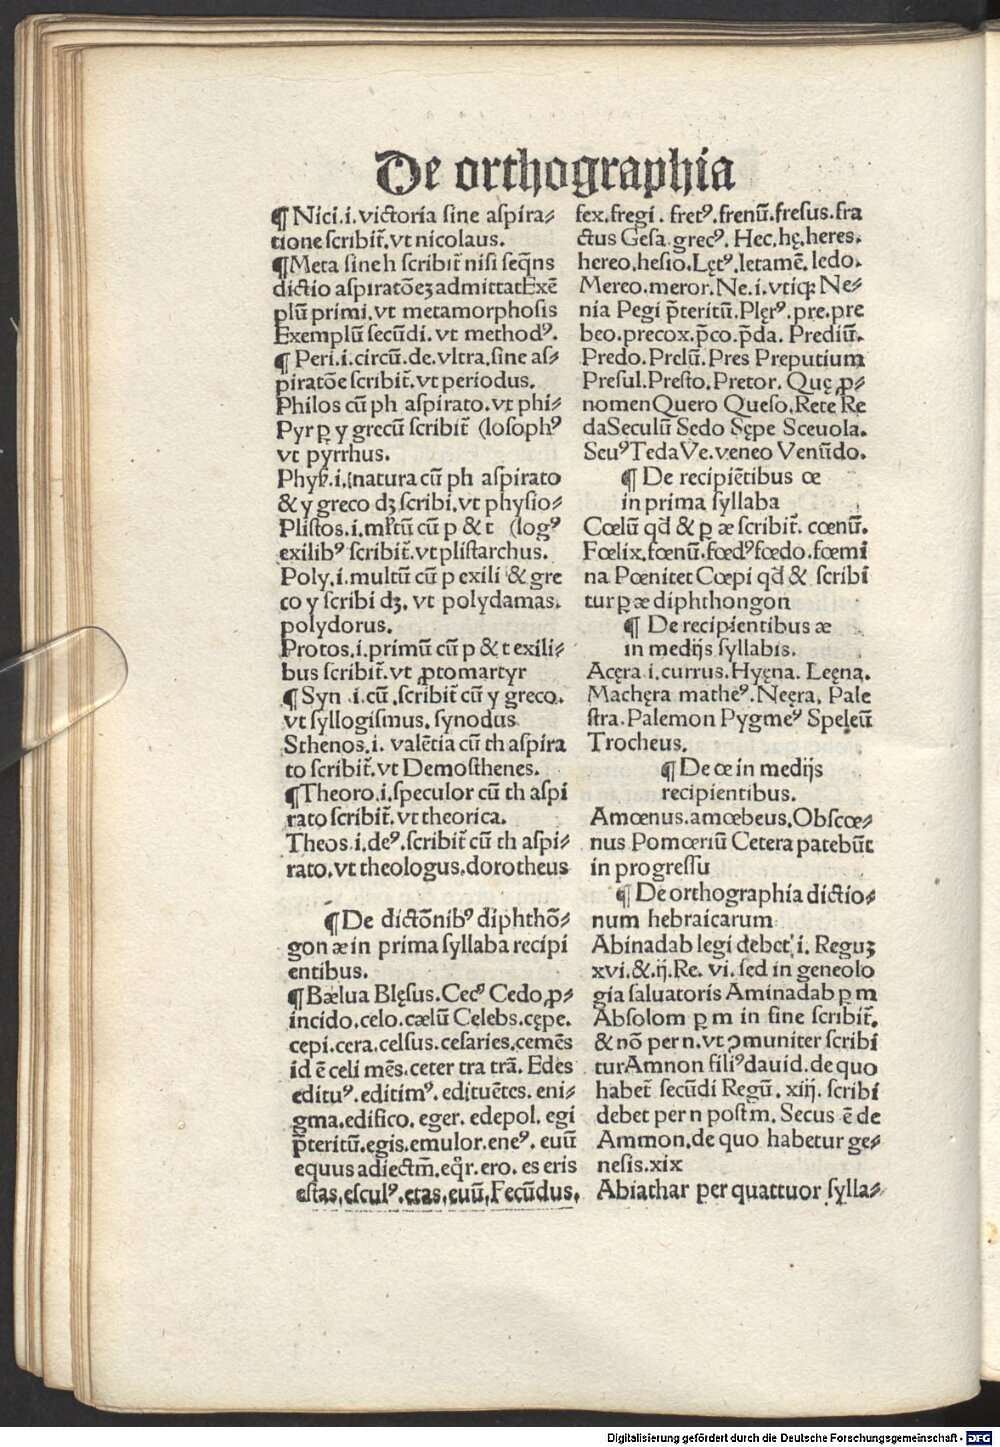 De orthographia
¶ Nici.i.victoria sine aspira⸗
tione scribit̃.vt nicolaus.
¶Meta sine h scribit̃ nisi seq̃ns
dictio aspiratõeꝫ admittat Exẽ
plũ primi.vt metamorphosis
Exemplũ secũdi.vt methodꝰ.
¶ Peri.i.circũ.de.vltra.sine as⸗
piratõe scribit̃.vt periodus.
Philos cũ ph aspirato.vt phi⸗
Pyr ꝑ y grecũ scribit̃ (losophꝰ
vt pyrrhus.
Physꝭ.i.natura cũ ph aspirato
& y greco dꝫ scribi.vt physio⸗
Plistos.i.mĺtũ cũ p & t (logꝰ
exilibꝰ scribit̃.vt plistarchus.
Poly.i.multũ cũ p exili & gre
co y scribi dꝫ. vt polydamas.
polydorus.
Protos.i.primũ cũ p & t exili⸗
bus scribit̃.vt ꝓtomartyr
¶ Syn .i.cũ.scribit̃ cũ y greco.
vt syllogismus. synodus
Sthenos.i. valẽtia cũ th aspira
to scribit̃.vt Demosthenes.
¶Theoro.i.speculor cũ th aspi
rato scribit̃.vt theorica.
Theos.i.deꝰ.scribit̃ cũ th aspi⸗
rato.vt theologus.dorotheus
¶De dictõnibꝰ diphthõ⸗
gon æ in prima syllaba recipi
entibus.
¶Bælua Blęsus.Cecꝰ Cedo.ꝓ⸗
incido.celo.cælũ Celebs.cępe.
cepi.cera.celsus.cesaries.cemẽs
id ẽ celi mẽs.ceter tra trã. Edes
edituꝰ.editimꝰ.edituẽtes.eni⸗
gma.edifico.eger. edepol.egi
p̃teritũ.egis.emulor.eneꝰ. euũ
equus adiectm̃.eq̃r.ero.es eris
estas.esculꝰ.etas.euũ.Fecũdus.
fex.fregi.fretꝰ.frenũ.fresus.fra
ctus Gesa.grecꝰ. Hec.hę.heres.
hereo.hesio.Lętꝰ.letamẽ.ledo.
Mereo.meror.Ne.i.vtiqꝫ Ne⸗
nia Pegi p̃teritũ.Plęrꝰ.pre.pre
beo.precox.p̃co.p̃da. Prediũ.
Predo.Prelũ.Pres Preputium
Presul.Presto.Pretor. Quę ꝓ⸗
nomen Quero Queso.Rete Re
da Seculũ Sedo Sępe Sceuola.
Scuꝰ Teda Ve.veneo Venũdo.
¶ De recipiẽtibus œ
in prima syllaba
Cœlũ qd̃ & ꝑ æ scribit̃. cœnũ.
Fœlix.fœnũ.fœdꝰ fœdo.fœmi
na Pœnitet Cœpi qd̃ & scribi
tur ꝑ æ diphthongon
¶ De recipientibus æ
in medijs syllabis.
Acęra.i.currus.Hyęna. Leęna.
Machęra matheꝰ.Neęra. Pale
stra.Palemon Pygmeꝰ Speleũ
Trocheus.
¶ De œ in medijs
recipientibus.
Amœnus.amœbeus.Obscœ⸗
nus Pomœriũ Cetera patebũt
in progressu
¶ De orthographia dictio⸗
num hebraicarum
Abinadab legi debet.i. Reguꝫ
xvi.&.ij.Re. vi.sed in geneolo
gia saluatoris Aminadab ꝑ m
Absolom ꝑ m in fine scribit̃.
& nõ per n.vt ↄmuniter scribi
tur Amnon filiꝰ dauid.de quo
habet̃ secũdi Regũ. xiij. scribi
debet per n post m. Secus ẽ de
Ammon.de quo habetur ge⸗
nesis.xix
Abiathar per quattuor sylla⸗
Digitalisierung gefördert durch die Deutsche Forschungsgemeinschaft - DFG